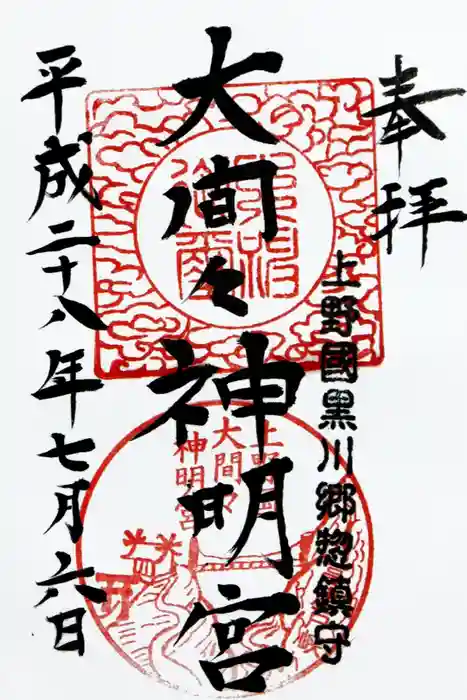 奉拝
上野國黒川郷惣鎮守
大間々神明宮
平成二十八年七月六日
上野國
大間々
神明宮